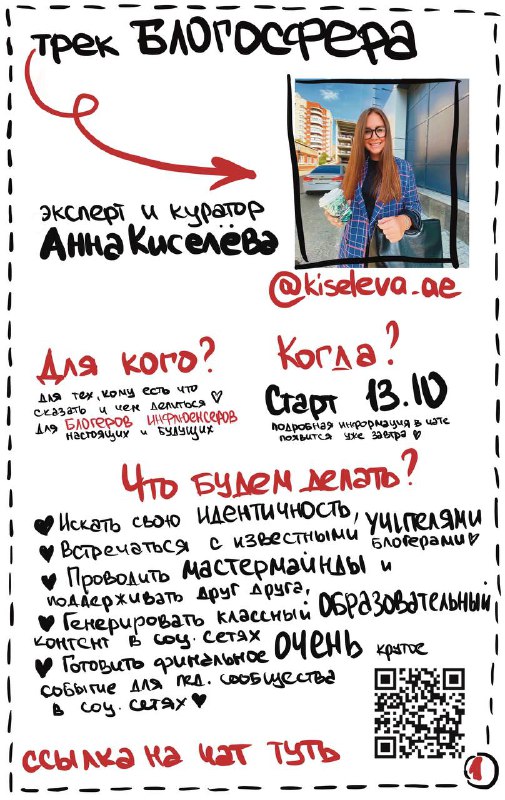 трек БЛОГОСФЕРА
эксперт и куратор
Анна Киселёва
@kiseleva_ae
Для кого?
для тех, кому есть что
сказать и чем делиться ♡
для БЛОГЕРОВ ИНФЛЮЕНСЕРОВ
настоящих и будущих
Когда?
Старт 13.10
подробная информация в чате
появится уже завтра ♡
Что будем делать?
♥ Искать свою идентичность,
♥ Встречаться с известными учителями
блогерами ♡
♥ Проводить мастермайнды и
поддерживать друг друга,
♥ Генерировать классный ОБРАЗОВАТЕЛЬНЫЙ
контент в соц. сетях
♥ Готовить финальное ОЧЕНЬ крутое
событие для пед. сообщества
в соц. сетях ♥
ссылка на чат туть
1